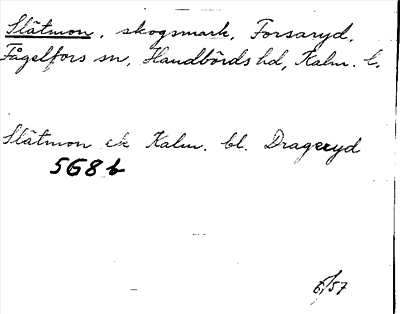 Slätmon, skogsmark, Forsaryd,
Fågelfors sn, Handbörds hd, Kalm. l.
Slätmon ek Kalm. bl. Drageryd
5G8b
6/57